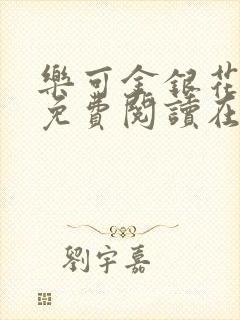 樂可金銀花
免費閱讀在
劉宇嘉